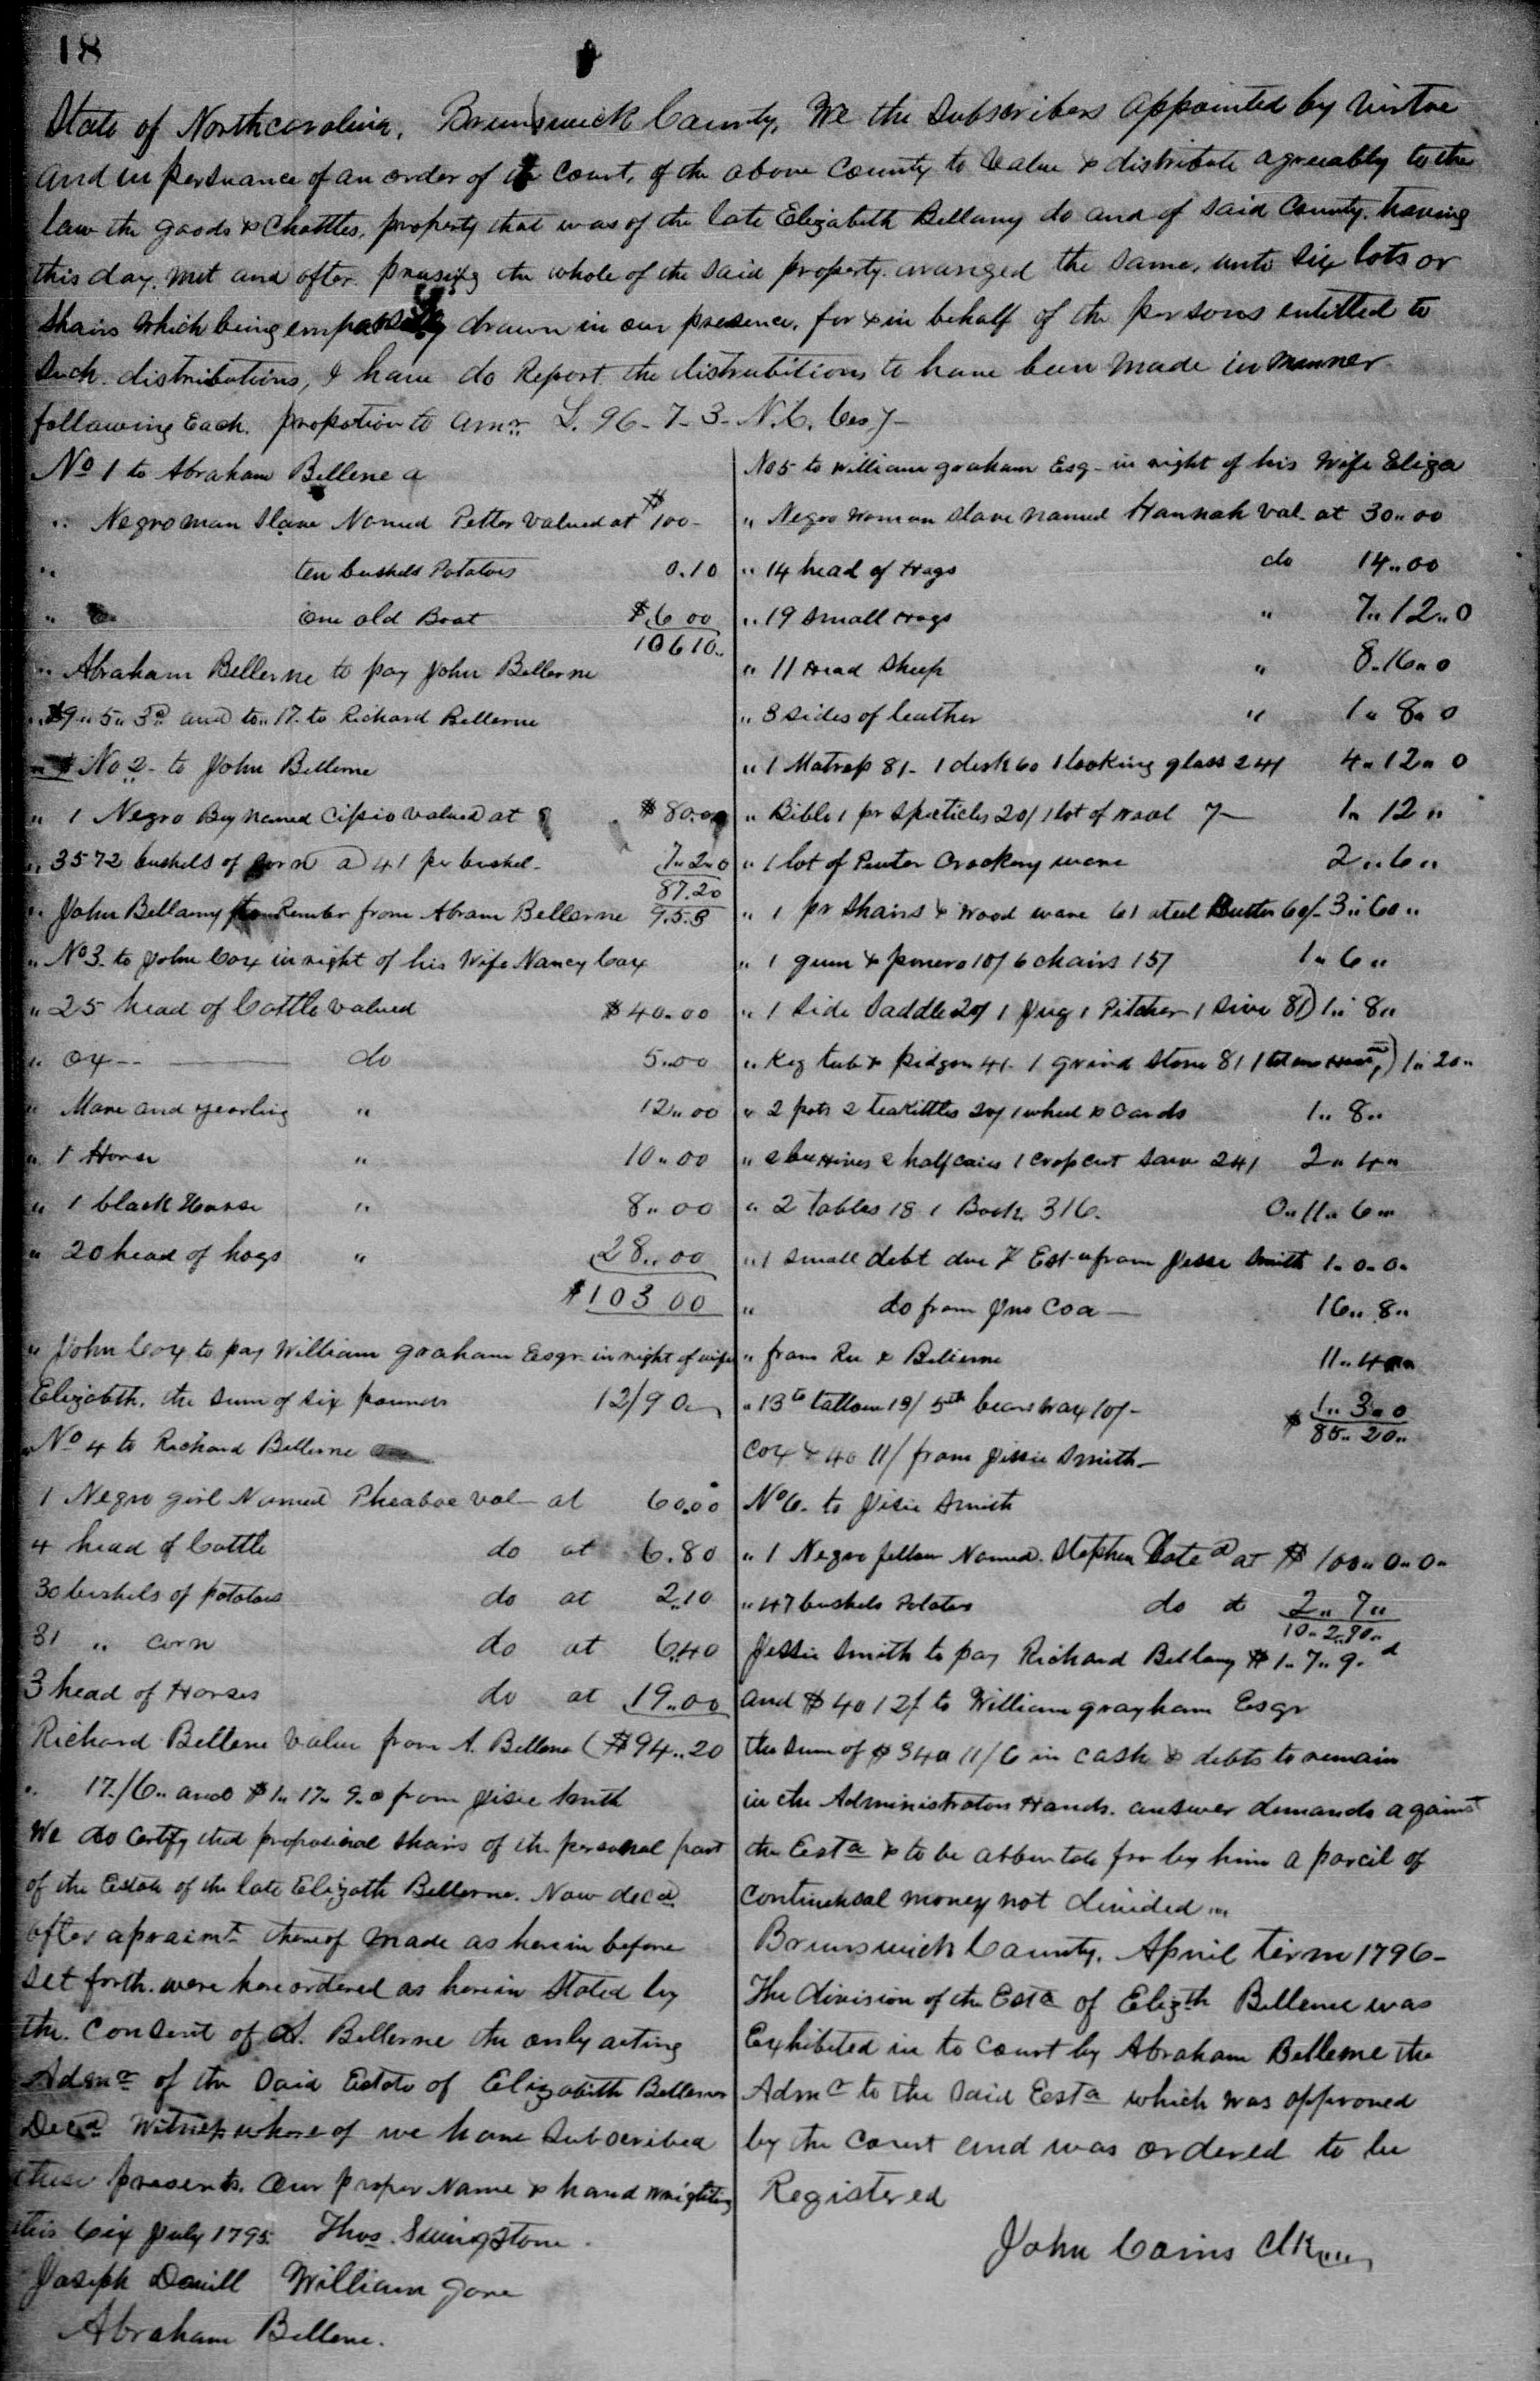 18
State of Northcarolina, Brunswick County, We the Subscribers appointed by virtue
and in persuance of an order of the Court, of the above County to value & distribute agreeably to the
law the goods & Chattles, property that was of the late Elizabeth Bellamy do and of said County. having
this day. met and after prusing the whole of the said property. arranged the same, unto six lots or
shairs which being drawn in our presence, for & in behalf of the persons entitled to
such distributions, I have do Report the distrubitions to have been made in manner
following Each. propotion to L. 96-7-3- N.C.
No 1 to Abraham Bellene a
" Negro man slave Named Petter valued at $100-
" ten bushels Potatoes 0.10
" one old Boat $6 00
10610..
" Abraham Bellerne to pay John Bellerne
9" 5" 3d and to" 17. to Richard Bellerne
" No 2- to John Bellerne
" 1 Negro Boy named Cipio valued at $80.00
" 3572 bushels of corn a 41 per bushel- 7"2"0
87.20
" John Bellamy from Abram Bellerne 9.5.8
" No 3. to John Cox in right of his Wife Nancy Cox
" 25 head of Cattle valued $40.00
" ox-- do 5.00
" Mare and yearling " 12"00
" 1 Horse " 10"00
" 1 black Horse " 8"00
" 20 head of hogs " 28"00
$103 00
" John Cox to pay William graham Esqr. in right of wife
Elizabeth. the sum of six pounds 12/9
" No 4 to Richard Bellerne
1 Negro girl Named Pheaboe val- at 60.00
4 head of Cattle do at 6.80
30 bushels of potatoes do at 2.10
31 " corn do at 6.40
3 head of Horses do at 19.00
Richard Bellene value from A. Bellene ($94..20
" 17./6" and $1" 17" 9.0 from Jisie Smith
We do Certify that propotional shairs of the personal part
of the Estate of the late Elizath Bellerne. Now decd
after apraimt thereof made as herein before
set forth. were here ordered as herein stated by
the. Consent of A. Bellerne the only acting
Admr of the Said Estate of Elizabeth Bellerne
Decd Witness where of we have subscribed
these presents. Our proper Name & hand wrighting
this Six July 1795. Thos.
Joseph William Gore
Abraham Bellene.
No 5 to William graham Esq- in right of his Wife Eliza
" Negro Woman slave named Hannah val- at 30"00
" 14 head of Hogs do 14"00
" 19 small Hogs " 7"12"0
" 11 Head Sheep " 8"16"0
" 3 sides of leather " 1" 8"0
" 1 Matrass 81- 1 desk 60 1 looking glass 241 4"12"0
" Bible 1 pr Specticles 20/ 1 lot of wool 7- 1"12"
" 1 lot of Peuter Crockery ware 2"6"
" 1 pr Shairs & wood ware 61 Butter 60/- 3"60"
" 1 gum & 10/ 6 chairs 157 1"6"
" 1 side Saddle 20/ 1 Jug 1 Pitcher 1 Sive 81) 1"8"
" Keg tub & pidgon 41- 1 grind stone 81 1) 1"20"
" 2 pots 2 teakittles 20/ 1 wheel & Cards 1"8"
" 2 1 crop cut saw 241 2"4"
" 2 tables 18 1 Book 316. 0"11"6"
" 1 small debt due Est-a from Jesse Smith 1"0"0"
" do from Jno Coa- 16"8"
" from & Bellerne 11"4"
" 13 tallow 19/ 5 bees wax 10/- 1"3"0
$85"20"
Cox & 40 11/ from Jissie Smith-
No 6. to Jisie Smith
" 1 Negro fellow Named. Stephen at $100"0"0"
" 47 bushels Potatoes do 2"7"
10"2"90"
Jessie Smith to pay Richard Bellamy $1"7"9.d
and $4012/ to William grayham Esqr
the sum of $340 11/6 in cash & debts to remain
in the Administrators Hands. answer demands against
the Esta & to be for by him a parcil of
continental money not divided...
Brunswick County. April term 1796-
The division of the Esta of Elizth Bellene was
Exhibited in to Court by Abraham Bellerne the
Admr to the said Esta which was approved
by the Court and was ordered to be
Registered
John Cains Clk